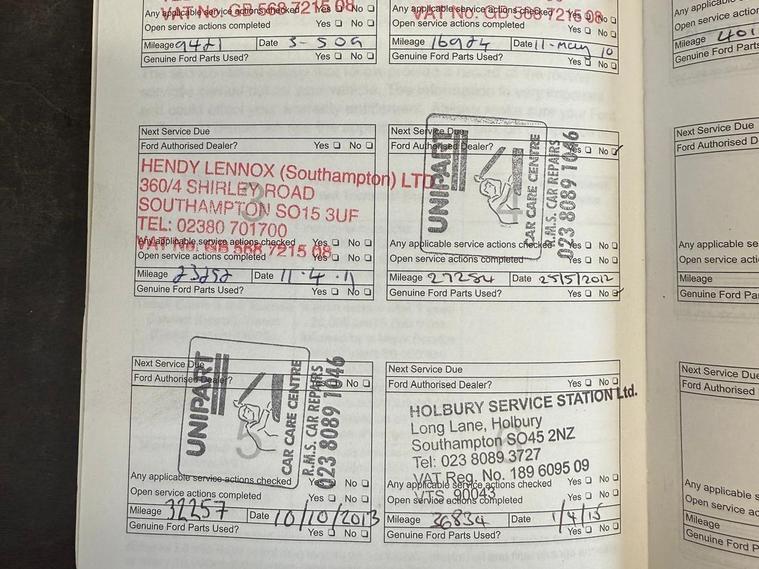 VAT No. GB 568 7215 08
Any applicable service actions checked Yes No
Open service actions completed Yes No
Mileage 9421 Date 3-5 09
Genuine Ford Parts Used? Yes No
VAT No. GB 568 7215 08
Any applicable service actions checked Yes No
Open service actions completed Yes No
Mileage 16974 Date 11-May 10
Genuine Ford Parts Used? Yes No
Any applicable
Open service action
Mileage 401
Genuine Ford Parts
Next Service Due
Ford Authorised Dealer? Yes No
3
HENDY LENNOX (Southampton) LTD
360/4 SHIRLEY ROAD
SOUTHAMPTON SO15 3UF
TEL: 02380 701700
VAT No. GB 568 7215 08
Any applicable service actions checked Yes No
Open service actions completed Yes No
Mileage 23252 Date 11.4.11
Genuine Ford Parts Used? Yes No
Next Service Due
Ford Authorised Dealer? Yes No
4
UNIPART
CAR CARE CENTRE
R.M.S. CAR REPAIRS
023 8089 1046
Any applicable service actions checked Yes No
Open service actions completed Yes No
Mileage 27284 Date 25/5/2012
Genuine Ford Parts Used? Yes No
Next Service Due
Ford Authorised D
Any applicable se
Open service acti
Mileage
Genuine Ford Pa
Next Service Due
Ford Authorised Dealer? No
5
UNIPART
CAR CARE CENTRE
R.M.S. CAR REPAIRS
023 8089 1046
Any applicable service actions checked No
Open service actions completed Yes No
Mileage 32257 Date 10/10/2013
Genuine Ford Parts Used? Yes No
Next Service Due
Ford Authorised Dealer? Yes No
HOLBURY SERVICE STATION Ltd.
Long Lane, Holbury
Southampton SO45 2NZ
Tel: 023 8089 3727
VAT Reg. No. 189 6095 09
VTS 90043
Any applicable service actions checked Yes No
Open service actions completed Yes No
Mileage 36834 Date 1/4/15
Genuine Ford Parts Used? Yes No
Next Service Due
Ford Authorised
Any applicable s
Open service ac
Mileage
Genuine Ford Pa